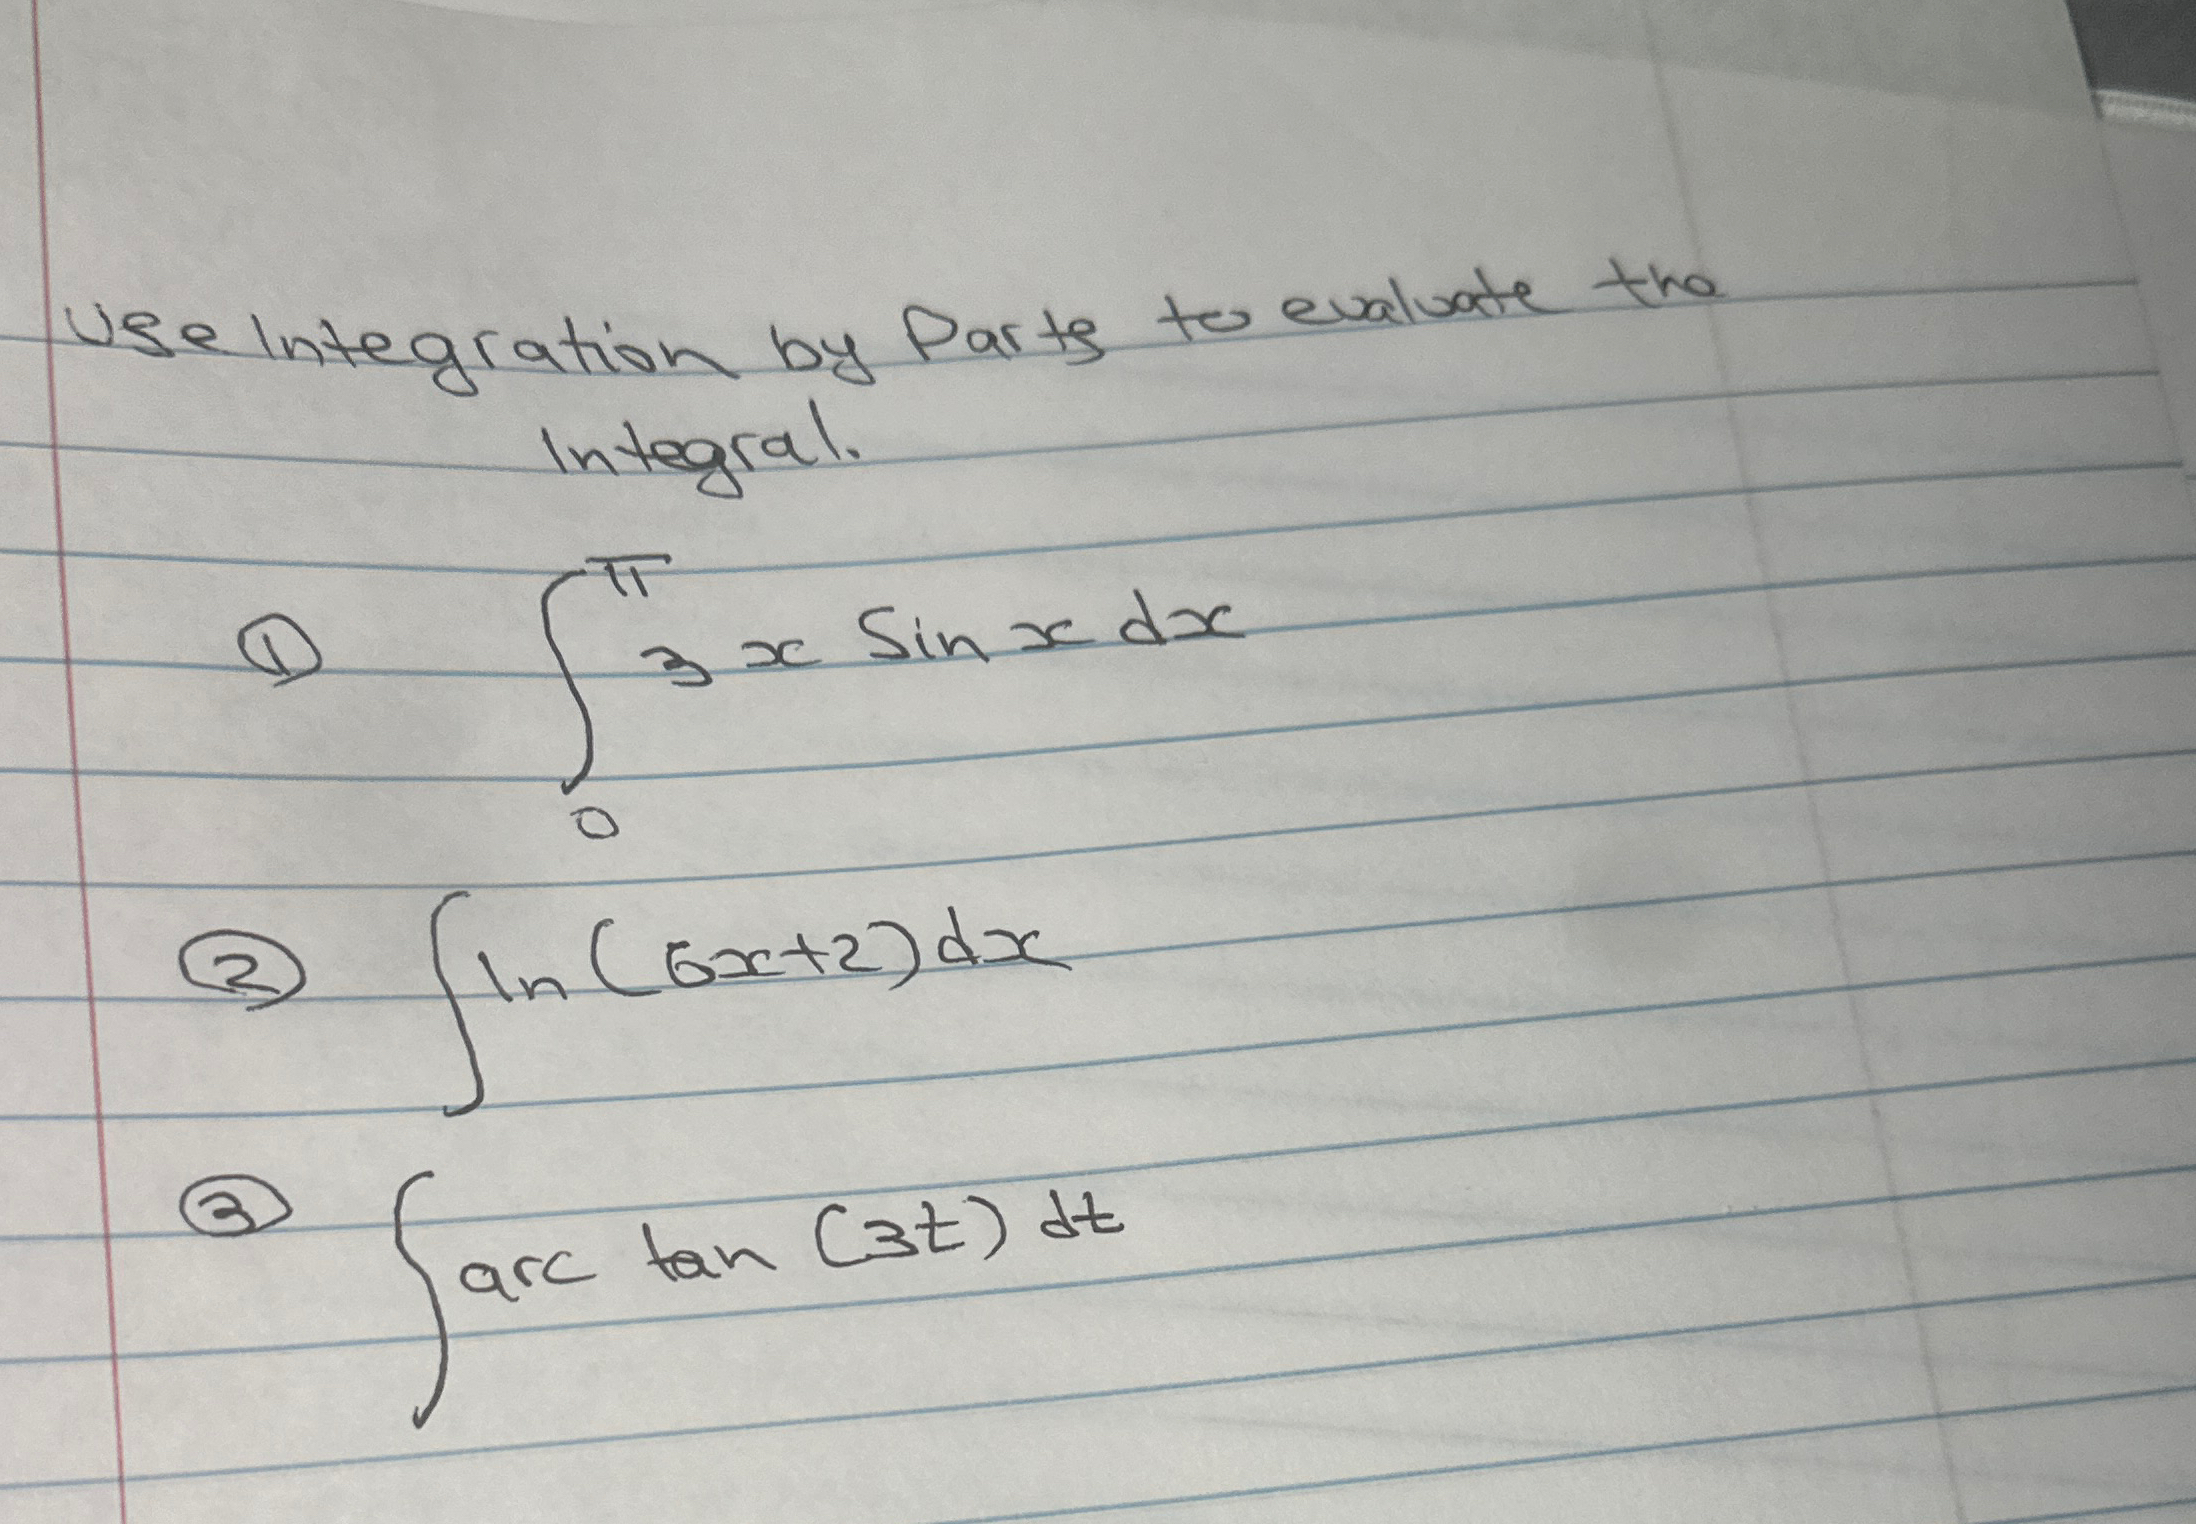 Use Integration by Parts to evaluate the
Integral.
① ∫₀^π 3 x Sin x dx
② ∫ ln (6x+2) dx
③ ∫ arc tan (3t) dt